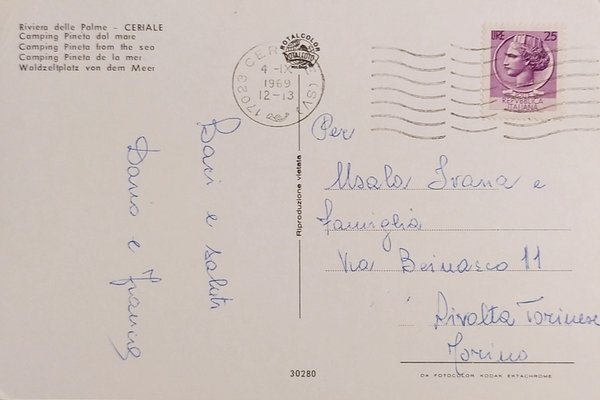 Riviera delle Palme - CERIALE
Camping Pineta dal mare
Camping Pineta from the sea
Camping Pineta de la mer
Waldzeltplatz von dem Meer
ROTALCOLOR
ROTALFOTO
17023 CERIALE (SV)
4 -IX
1969
12-13
LIRE 25
REPVBBLICA
ITALIANA
Baci e saluti
Dario e Franca
Riproduzione vietata
Per
Usala Ivana e
famiglia
Via Beinasco 11
Rivalta Torinese
Torino
30280
DA FOTOCOLOR KODAK EKTACHROME